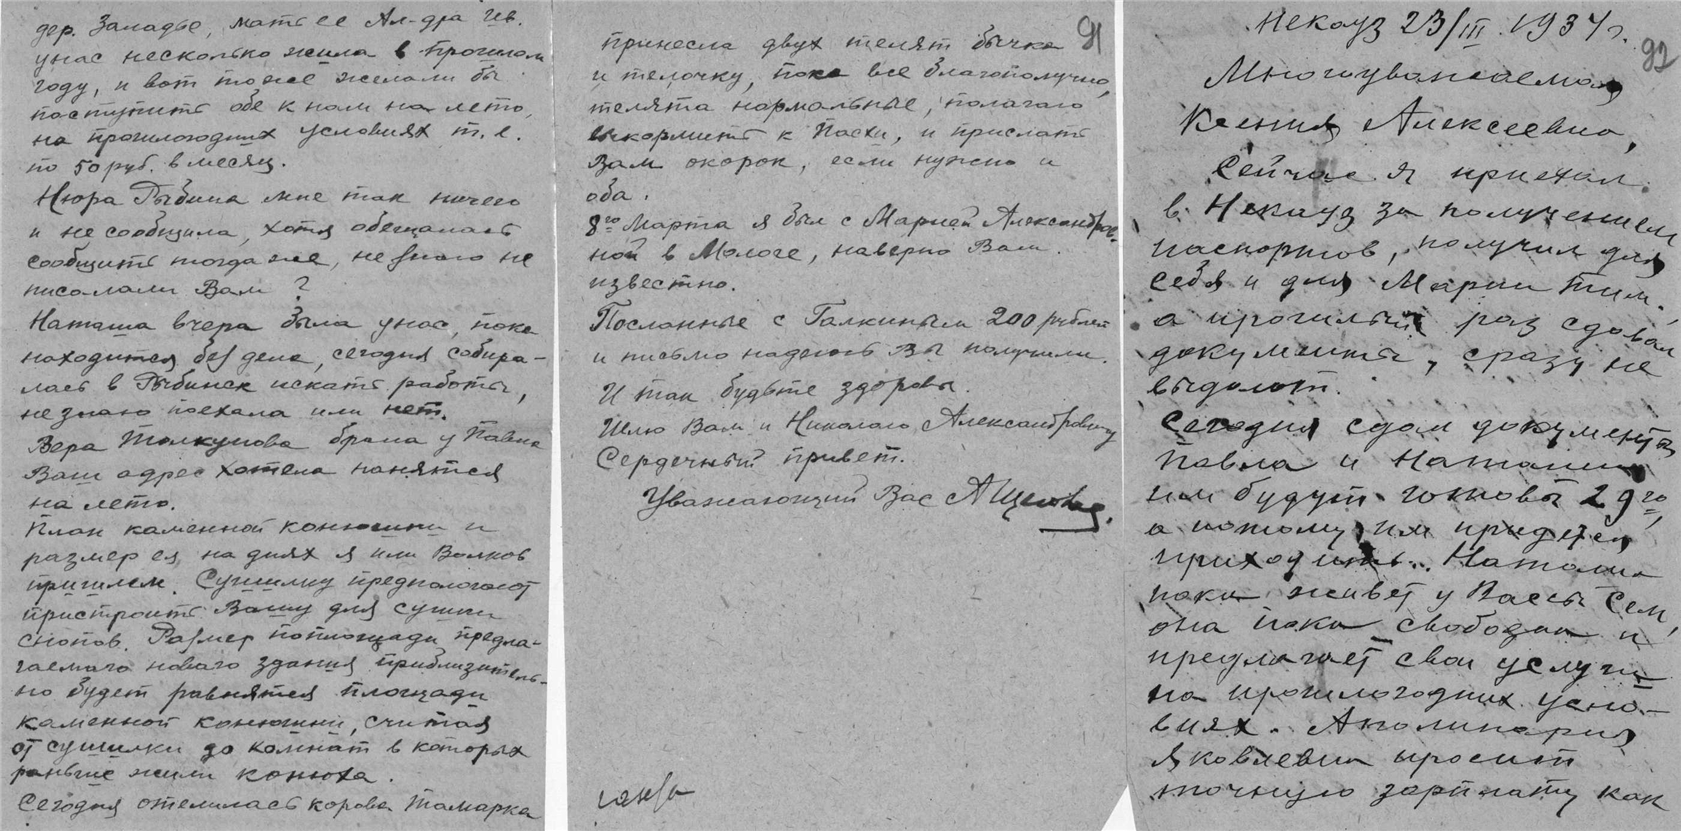 дер. Заладье, мать ее Ал-дра Ив.
у нас несколько жила в прошлом
году, и вот тоже желали бы
поступить обе к нам на лето,
на прошлогодних условиях т.е.
по 50 руб. в месяц.
Нюра Рыбина мне так ничего
и не сообщила, хотя обещалась
сообщить тогда же, не знаю не
писалали Вам?
Наташа вчера была у нас, пока
находится без дела, сегодня собира-
лась в Рыбинск искать работы,
не знаю поехала или нет.
Вера Толкунова брала у Павла
Ваш адрес хотела нанятся
на лето.
План каменной конюшни и
размер ея, на днях я или Волков
пришлем. Сушилку предполагают
пристроить Вашу для сушки
снопов. Размер по площади предла-
гаемаго новаго здания приблизитель-
но будет равнятся площади
каменной конюшни, считая
от сушилки до комнат в которых
раньше жили конюха.
Сегодня отелилась корова Тамарка
91
принесла двух телят бычка
и телочку, пока все благополучно,
телята нормальные, полагаю
выкормить к Пасхи, и прислать
Вам окорок, если нужно и
оба.
8го Марта я был с Марией Александров-
ной в Мологе, наверно Вам
известно.
Посланные с Галкиным 200 рублей
и письмо надеюсь Вы получили.
И так будьте здоровы.
Шлю Вам и Николаю Александровичу
Сердечный привет.
Уважающий Вас
92
Некоуз 23/III. 1934 г.
Многоуважаемая
Ксения Алексеевна,
Сейчас я приехал
в Некоуз за получением
паспортов, получил для
себя и для Марии Тим.
а прошлый раз сдавал
документы, сразу не
выдают.
Сегодня сдам документы
Павла и Наташи
им будут готовы 29го,
а потому им придется
приходить. Наташа
пока живет у Сем,
она пока свободна и
предлагает свои услуги
на прошлогодних усло-
виях. Аполинария
Яковлевна просит
точную зарплату как